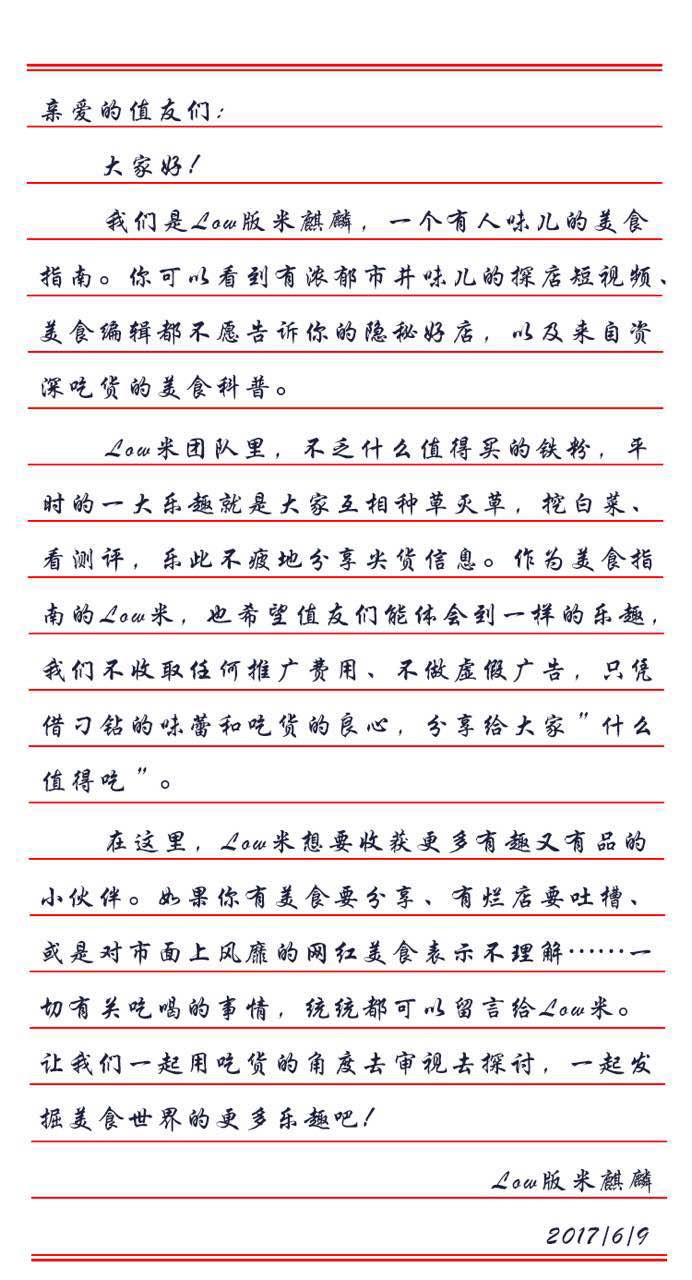 亲爱的值友们：
大家好！
我们是Low版米麒麟，一个有人味儿的美食
指南。你可以看到有浓郁市井味儿的探店短视频、
美食编辑都不愿告诉你的隐秘好店，以及来自资
深吃货的美食科普。
Low米团队里，不乏什么值得买的铁粉，平
时的一大乐趣就是大家互相种草灭草，挖白菜、
看测评，乐此不疲地分享尖货信息。作为美食指
南的Low米，也希望值友们能体会到一样的乐趣，
我们不收取任何推广费用、不做虚假广告，只凭
借刁钻的味蕾和吃货的良心，分享给大家"什么
值得吃"。
在这里，Low米想要收获更多有趣又有品的
小伙伴。如果你有美食要分享、有烂店要吐槽、
或是对市面上风靡的网红美食表示不理解……一
切有关吃喝的事情，统统都可以留言给Low米。
让我们一起用吃货的角度去审视去探讨，一起发
掘美食世界的更多乐趣吧！
Low版米麒麟
2017/6/9